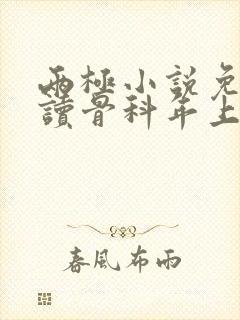 兩極小說免
讀骨科年上
春風布雨